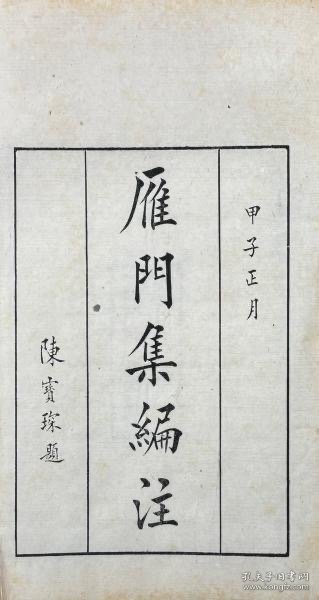 甲子正月
雁門集編注
陳寶琛題
孔夫子旧书网